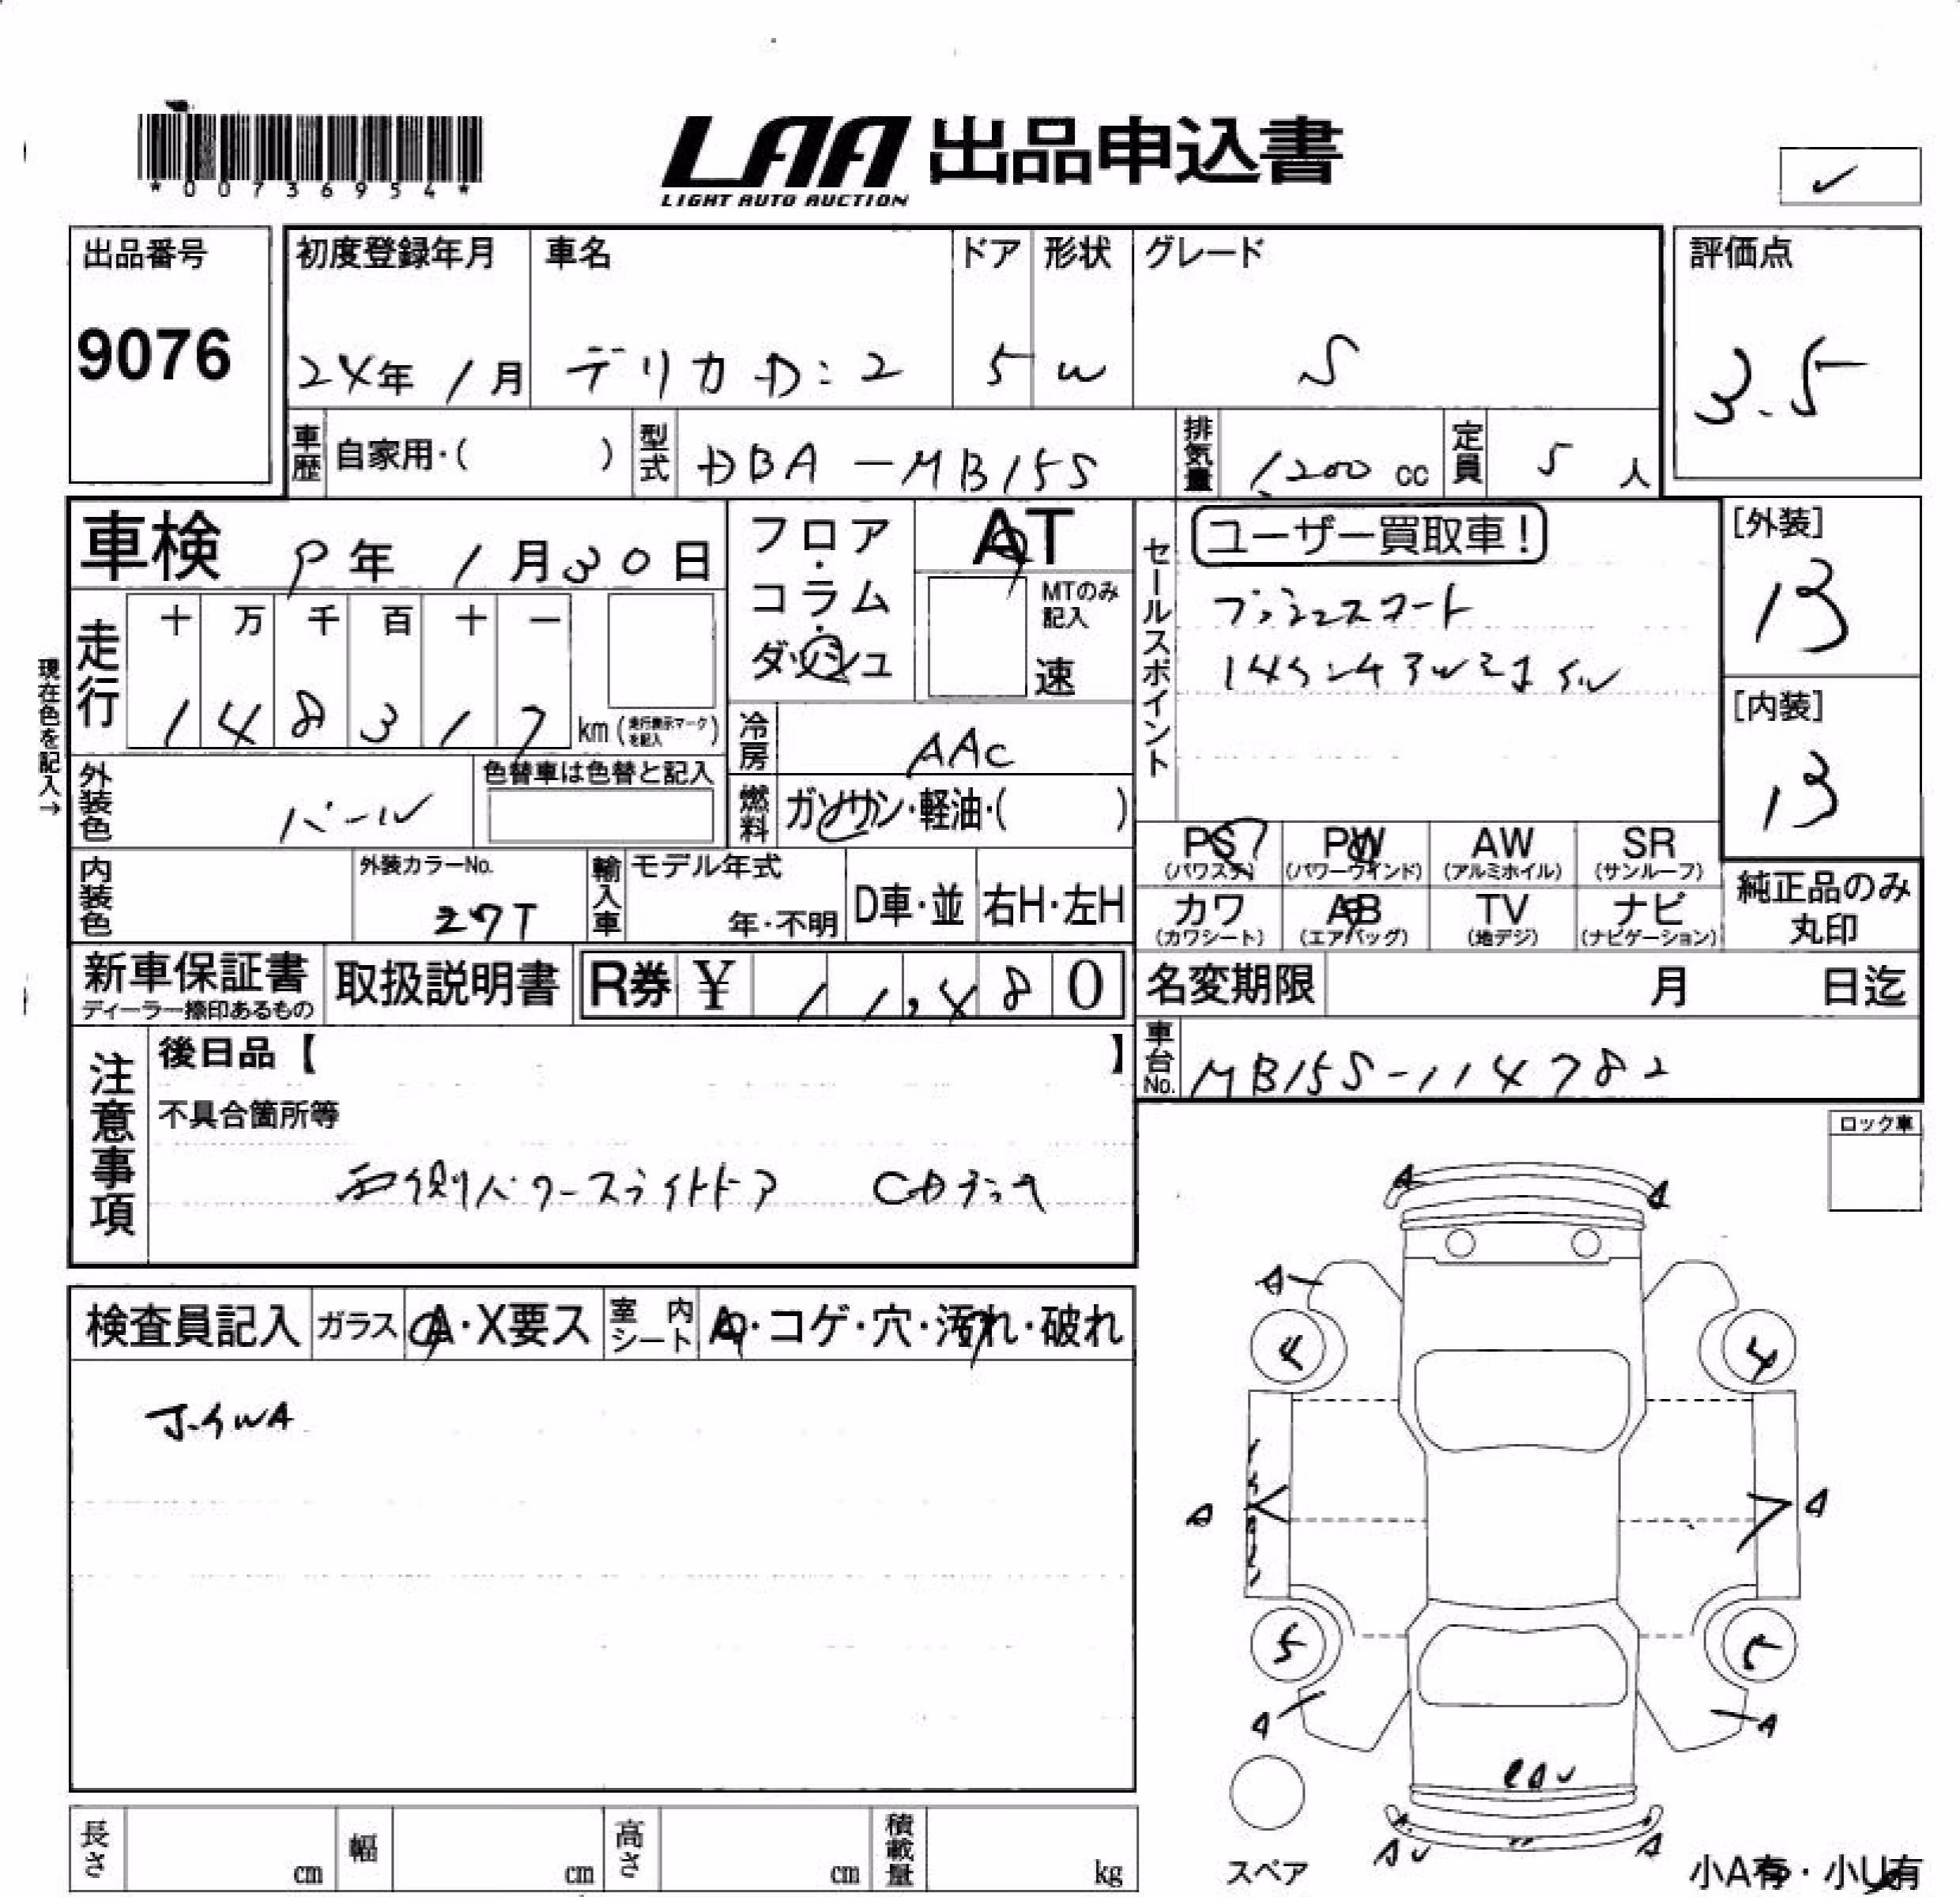 *00736954*
LAA 出品申込書
LIGHT AUTO AUCTION
✓
出品番号
9076
初度登録年月
24年 1月
車名
デリカD:2
ドア
5
形状
W
グレード
S
評価点
3.5
車歴 自家用・( )
型式 DBA-MB15S
排気量 1,200 cc
定員 5 人
車検 9年 1月30日
フロア・コラム・ダッシュ
AT
MTのみ記入
速
セールスポイント
ユーザー買取車!
プッシュスタート
[外装]
13
[内装]
13
現在色を記入→
走行
十 万 千 百 十 一
1 4 8 3 1 7 km (走行表示マークを記入)
冷房 AAC
外装色 パール
色替車は色替と記入
燃料 ガソリン・軽油・( )
PS (パワステ)
PW (パワーウインド)
AW (アルミホイル)
SR (サンルーフ)
カワ (カワシート)
AB (エアバッグ)
TV (地デジ)
ナビ (ナビゲーション)
純正品のみ丸印
内装色
外装カラーNo.
Z7T
輸入車
モデル年式
年・不明
D車・並
右H・左H
新車保証書
ディーラー捺印あるもの
取扱説明書
R券 ¥ 11,480
名変期限 月 日迄
車台No. MB15S-114782
注意事項
後日品【 】
不具合箇所等
両側パワースライドドア CDデッキ
ロック車
検査員記入
ガラス A・X要ス
室内シート A・コゲ・穴・汚れ・破れ
A
A
A
4
4
A
A
5
5
A
A
A
スペア
小A有・小U有
長さ cm
幅 cm
高さ cm
積載量 kg